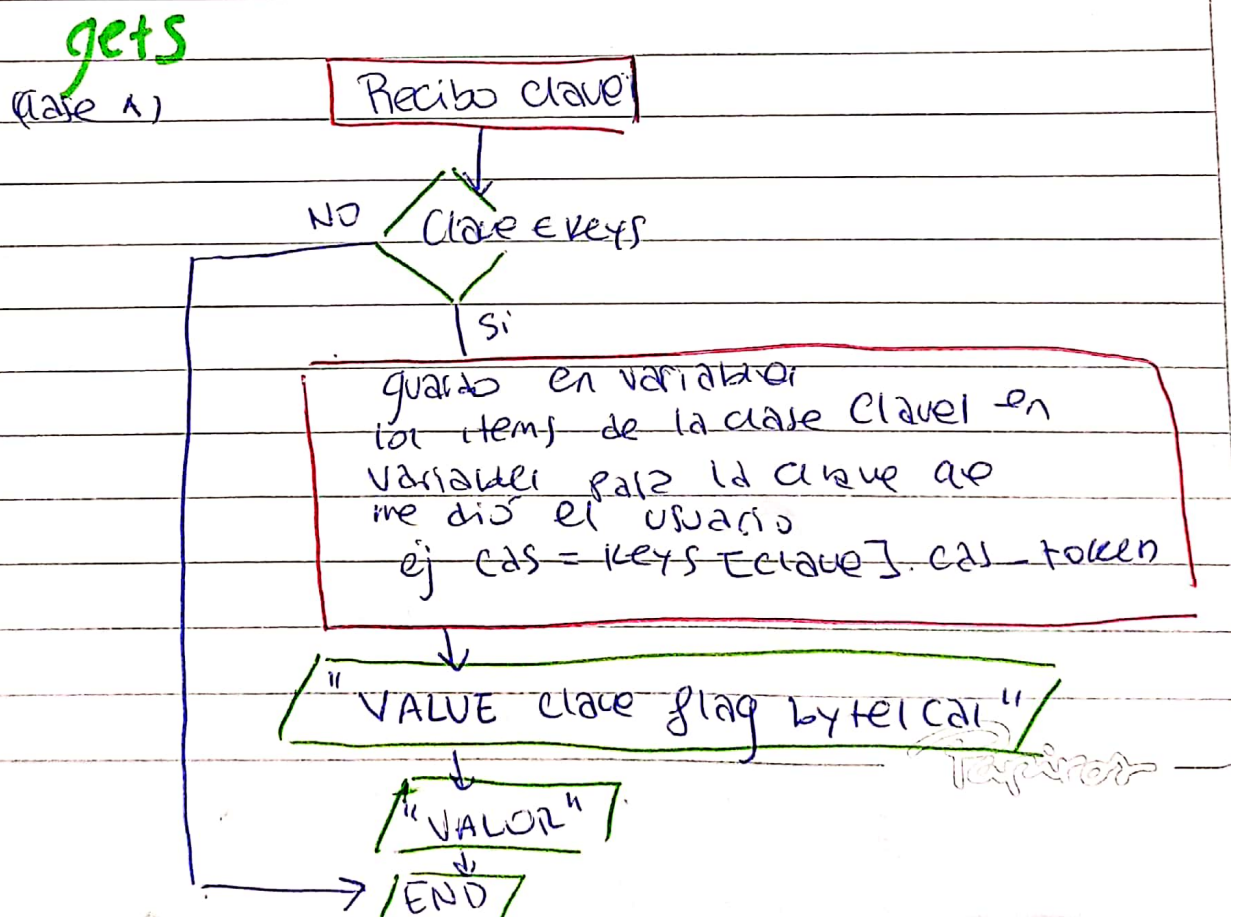 gets
(Clase A)
Recibo clave
NO
Clave ∈ keys
Si
guardo en variables
los items de la clase Clave1 en
variables para la clave qe
me dió el usuario
ej cas = keys [clave]. cas_token
"VALUE clave flag bytes cas"
"VALOR"
END